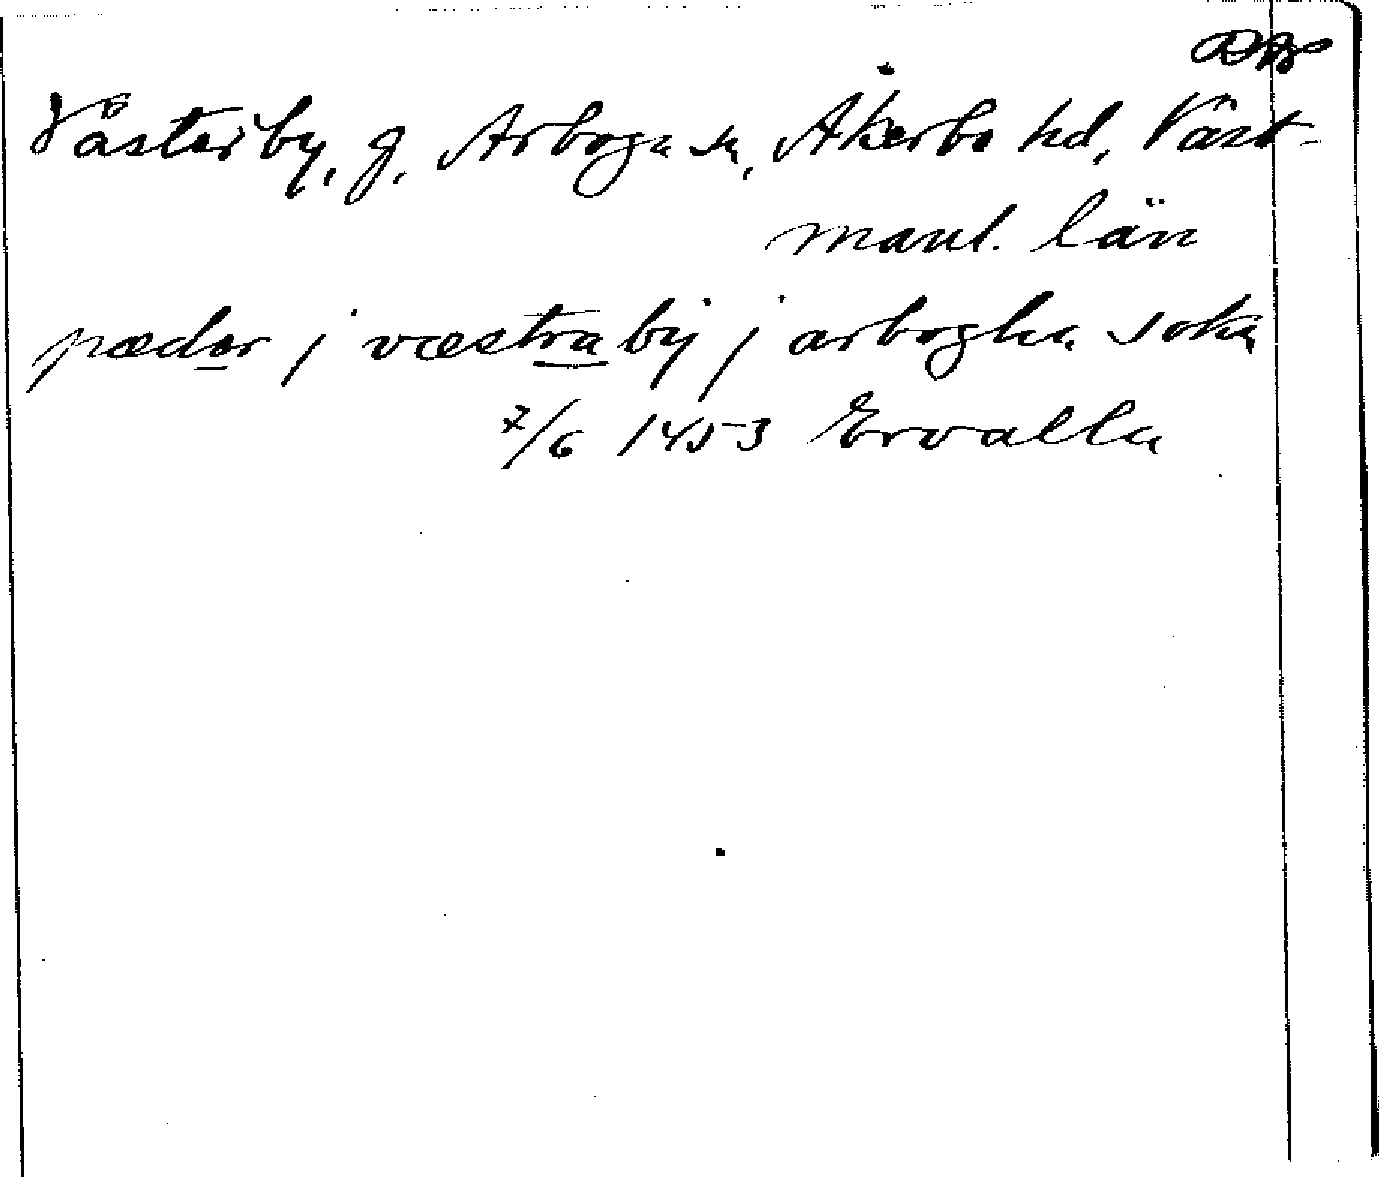 Västerby, g. Arboga sn, Åkerbo hd, Väst-
manl. län
pædar j væstraby j arbogha sokn
7/6 1453 Ervalla